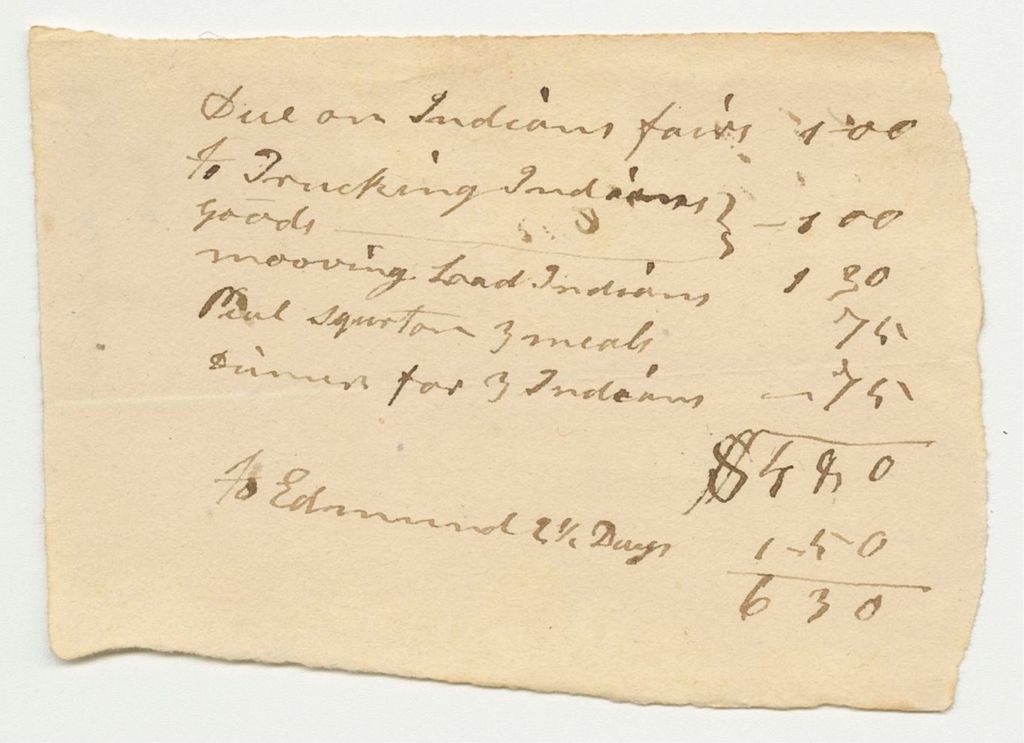 Due on Indians fairs 1-00
To Trucking Indians } - 1 00
goods
mooving Load Indians 1 30
3 meals 75
Dinner for 3 Indians - 75
$4 80
To Edmund 2½ Days 1-50
6 30